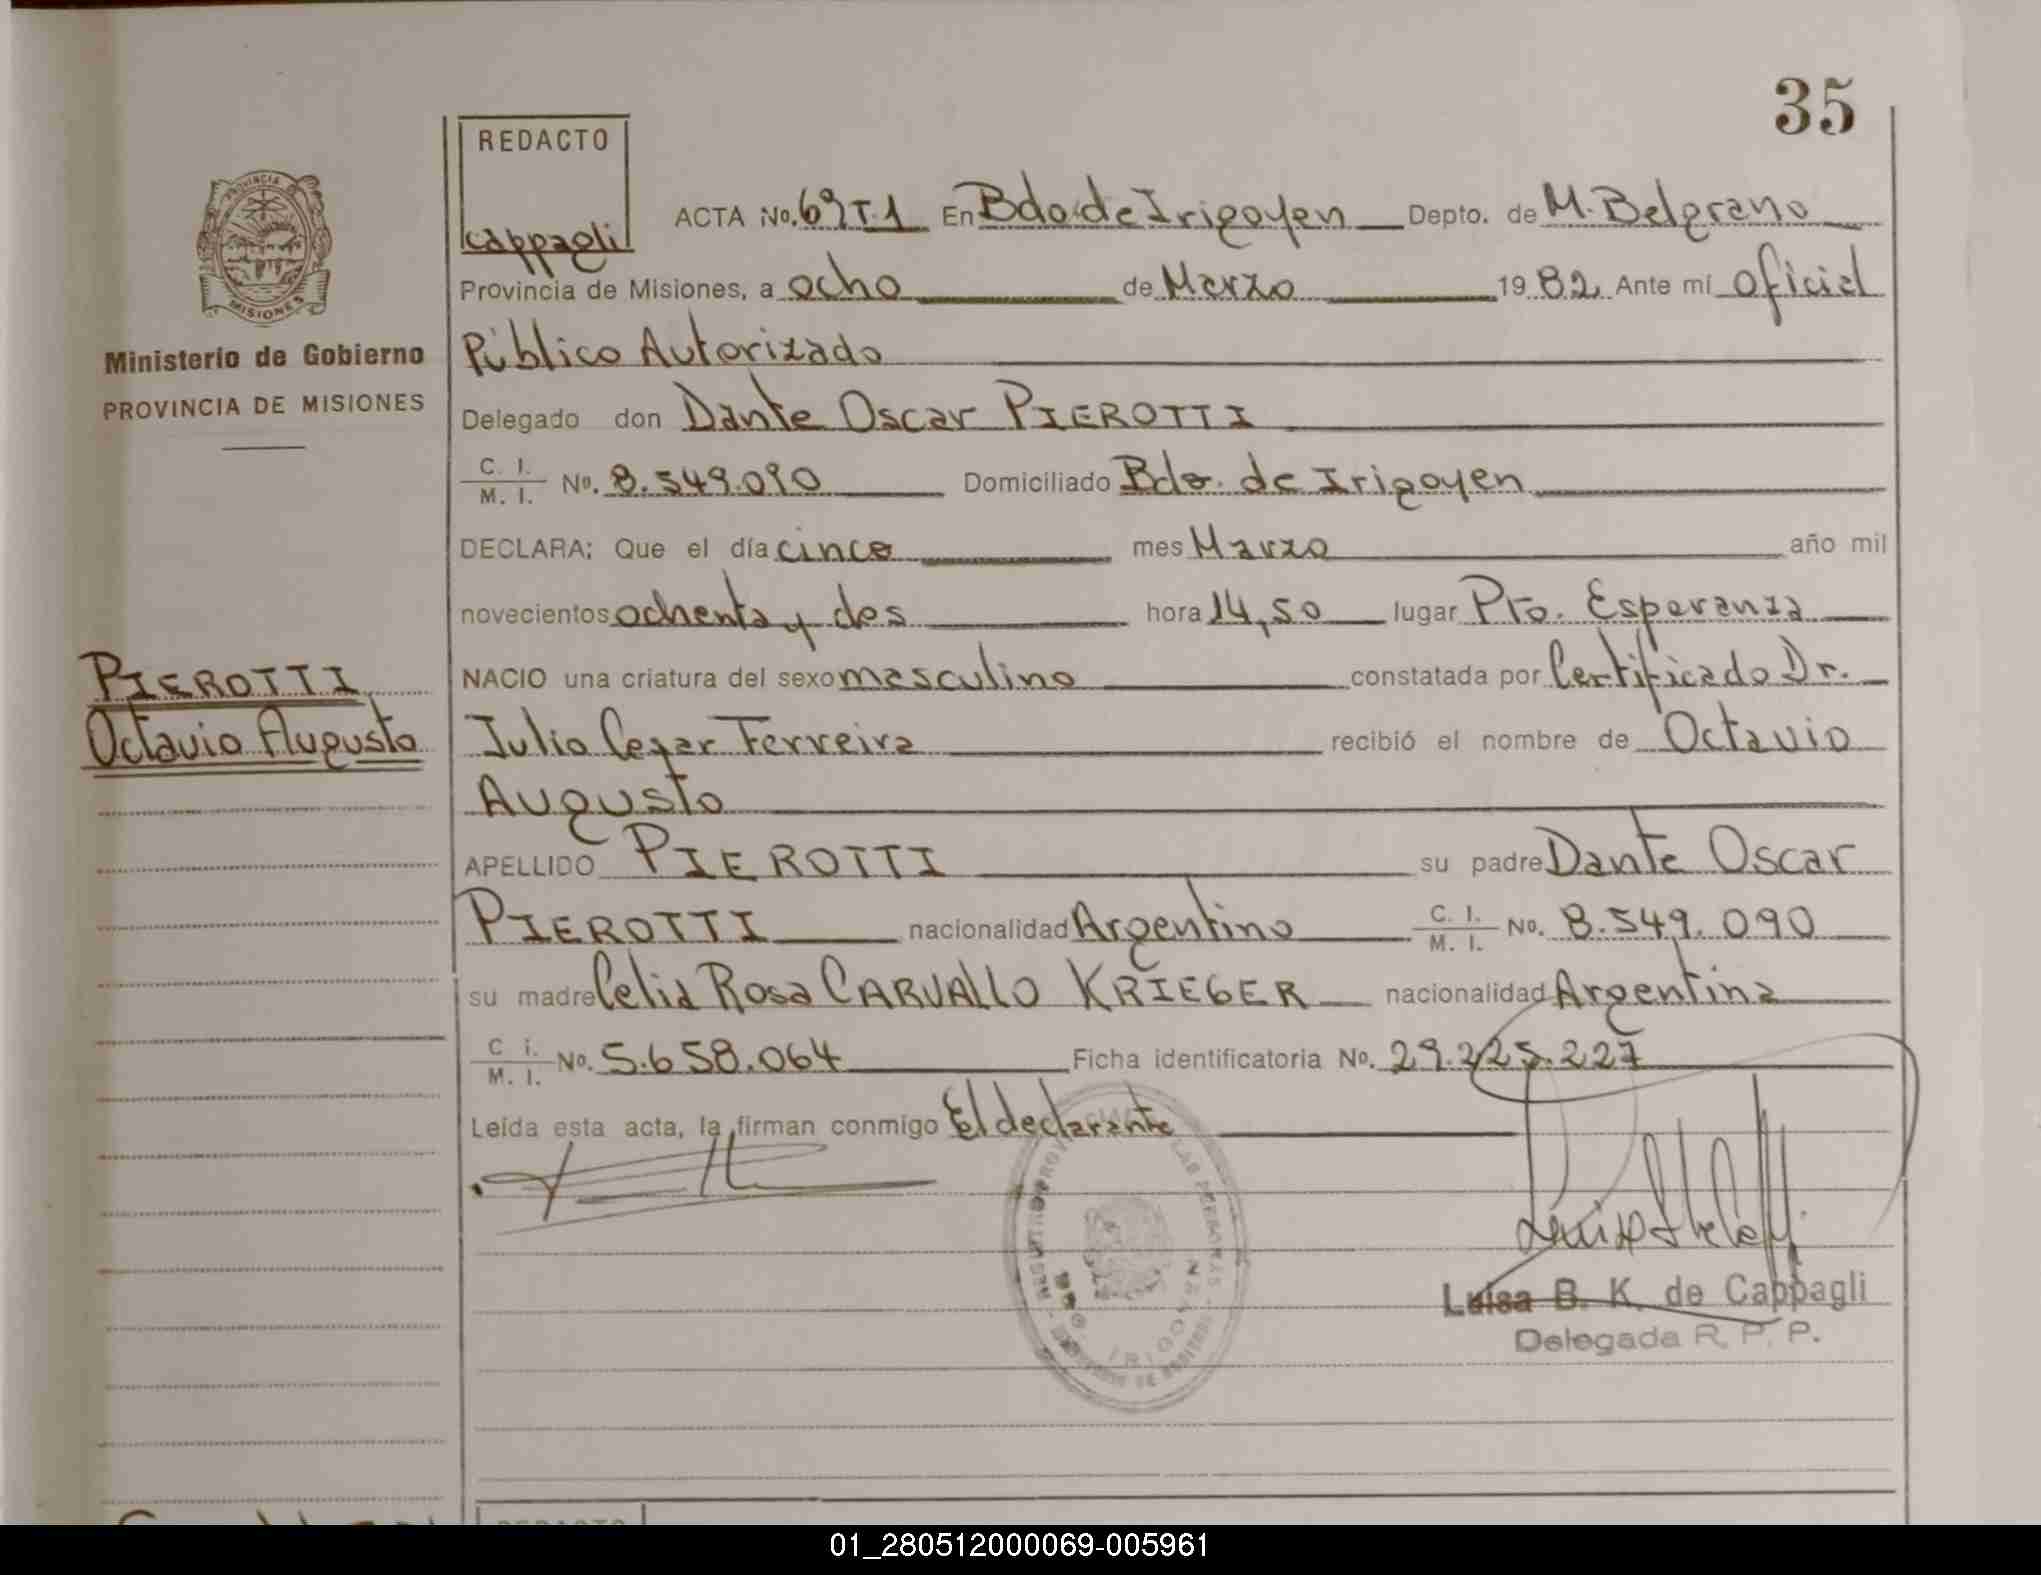 35
REDACTO
cappagli
PROVINCIA
MISIONES
Ministerio de Gobierno
PROVINCIA DE MISIONES
PIEROTTI
Octavio Augusto
ACTA No. 69T.1 En Bdo de Irigoyen Depto. de M. Belgrano
Provincia de Misiones, a ocho de Marzo 1982 Ante mí oficial
Público Autorizado
Delegado don Dante Oscar PIEROTTI
C. I. M. I. No. 8.549.090 Domiciliado Bdo. de Irigoyen
DECLARA: Que el día cinco mes Marzo año mil
novecientos ochenta y dos hora 14,50 lugar Pto. Esperanza
NACIO una criatura del sexo masculino constatada por Certificado Dr.
Julio Cezar Ferreira recibió el nombre de Octavio
Augusto
APELLIDO PIEROTTI su padre Dante Oscar
PIEROTTI nacionalidad Argentino C. I. M. I. No. 8.549.090
su madre Celia Rosa CARVALLO KRIEGER nacionalidad Argentina
C. I. M. I. No. 5.658.064 Ficha identificatoria No. 29.225.227
Leída esta acta, la firman conmigo El declarante
Luisa B. K. de Cappagli
Delegada R. P. P.
REDACTO
01_280512000069-005961